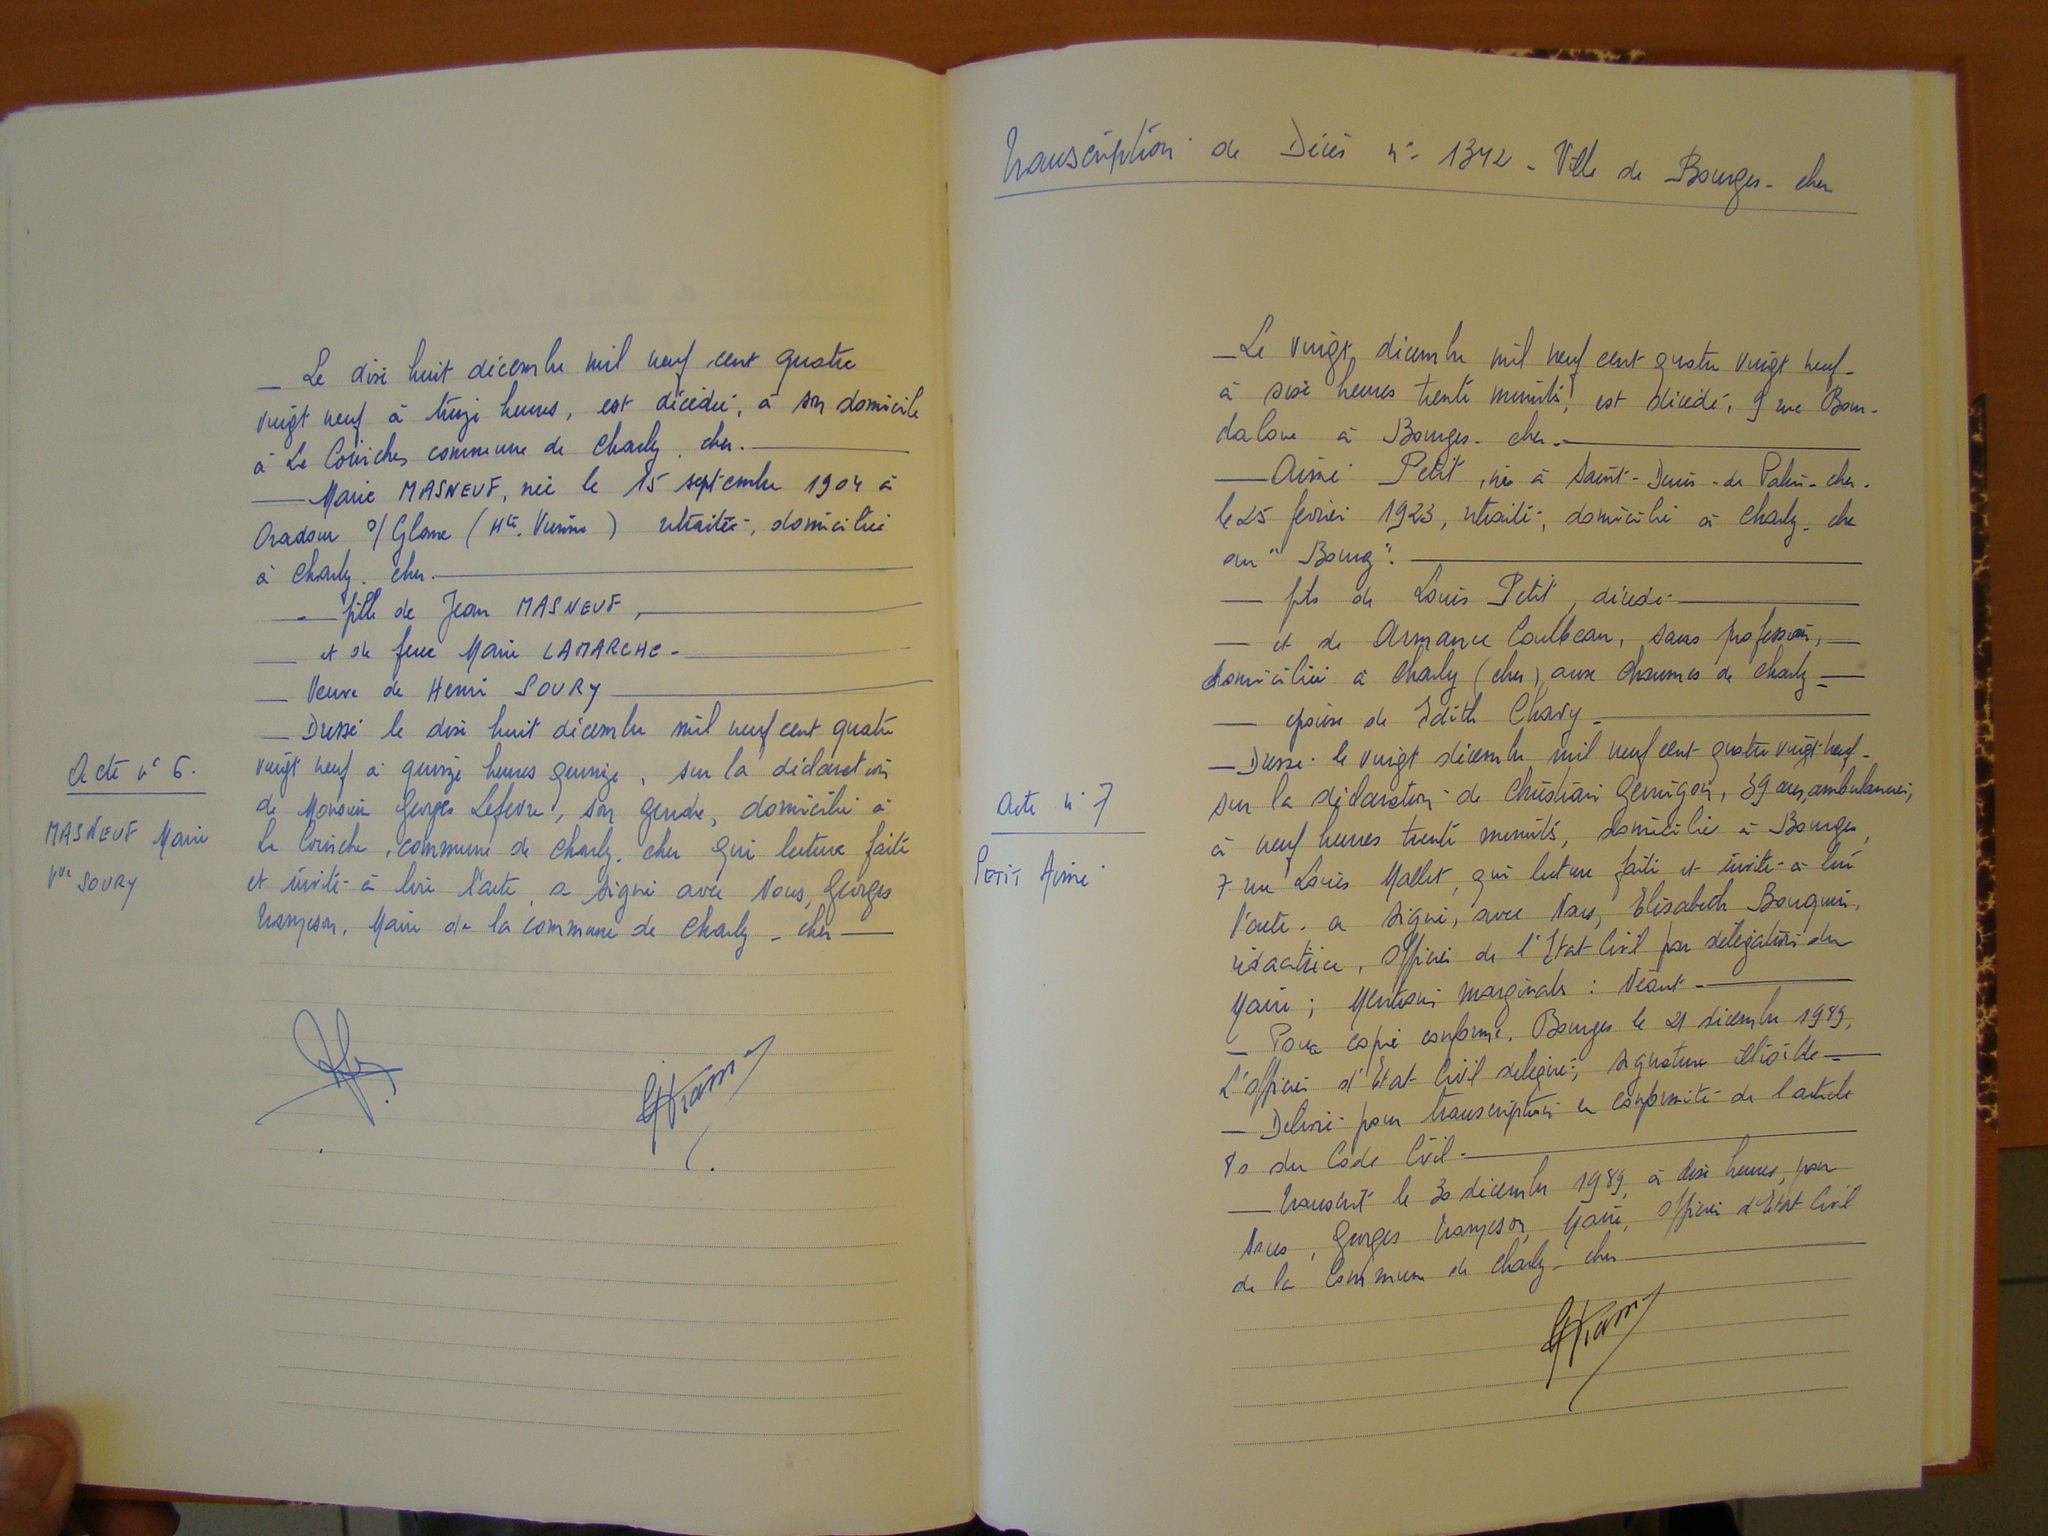 _ Le dix huit décembre mil neuf cent quatre
vingt neuf à treize heures, est décédée, à son domicile
à Le Couiches commune de Charly. cher.
Marie MASNEUF, née le 15 septembre 1904 à
Oradour s/ Glane (Hte. Vienne) retraitée, domiciliée
à Charly. cher.
fille de Jean MASNEUF,
et de feue Marie LAMARCHE.
Veuve de Henri SOURY
Dressé le dix huit décembre mil neuf cent quatre
vingt neuf à quinze heures quinze, sur la déclaration
de Monsieur Georges Lefevre, son gendre, domicilié à
Le Couiche, commune de Charly. cher qui lecture faite
et invité à lire l'acte, a signé avec Nous, Georges
Maire de la commune de Charly - cher
Acte n° 6.
MASNEUF Marie
Vve SOURY
Transcription de Décès n° 1342 - Ville de Bourges - cher
_ Le vingt décembre mil neuf cent quatre vingt neuf -
à six heures trente minutes, est décédé, 9 rue Bour-
daloue à Bourges - cher.
Aimé Petit, né à Saint-Denis-de Palin - cher -
le 25 février 1923, retraité, domicilié à Charly - cher
au "Bourg".
fils de Louis Petit, décédé
et de Armance Coulbeau, sans profession,
domiciliée à Charly (cher), aux Chaumes de Charly
époux de Edith Chavy -
_ Dressé le vingt décembre mil neuf cent quatre vingt neuf -
sur la déclaration de Christian 39 ans, ambulancier,
à neuf heures trente minutes, domicilié à Bourges,
7 rue Louis Mallet, qui lecture faite et invité à lire
l'acte a signé, avec Nous, Elisabeth Bouquin,
rédactrice, Officier de l'Etat Civil par délégation du
Maire; Mentions marginales : Néant -
_ Pour copie conforme. Bourges le 21 décembre 1989,
L'Officier d'Etat Civil délégué, signature illisible
_ Délivré pour transcription en conformité de l'article
80 du Code Civil -
Transcrit le 30 décembre 1989, à dix heures, par
Nous, Georges Maire, Officier d'Etat Civil
de la Commune de Charly - cher
Acte n° 7
Petit Aimé